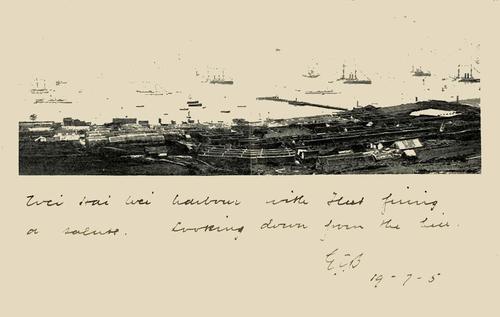 Wei Hai Wei harbour with Fleet firing
a salute. Looking down from the hill.
19-7-5